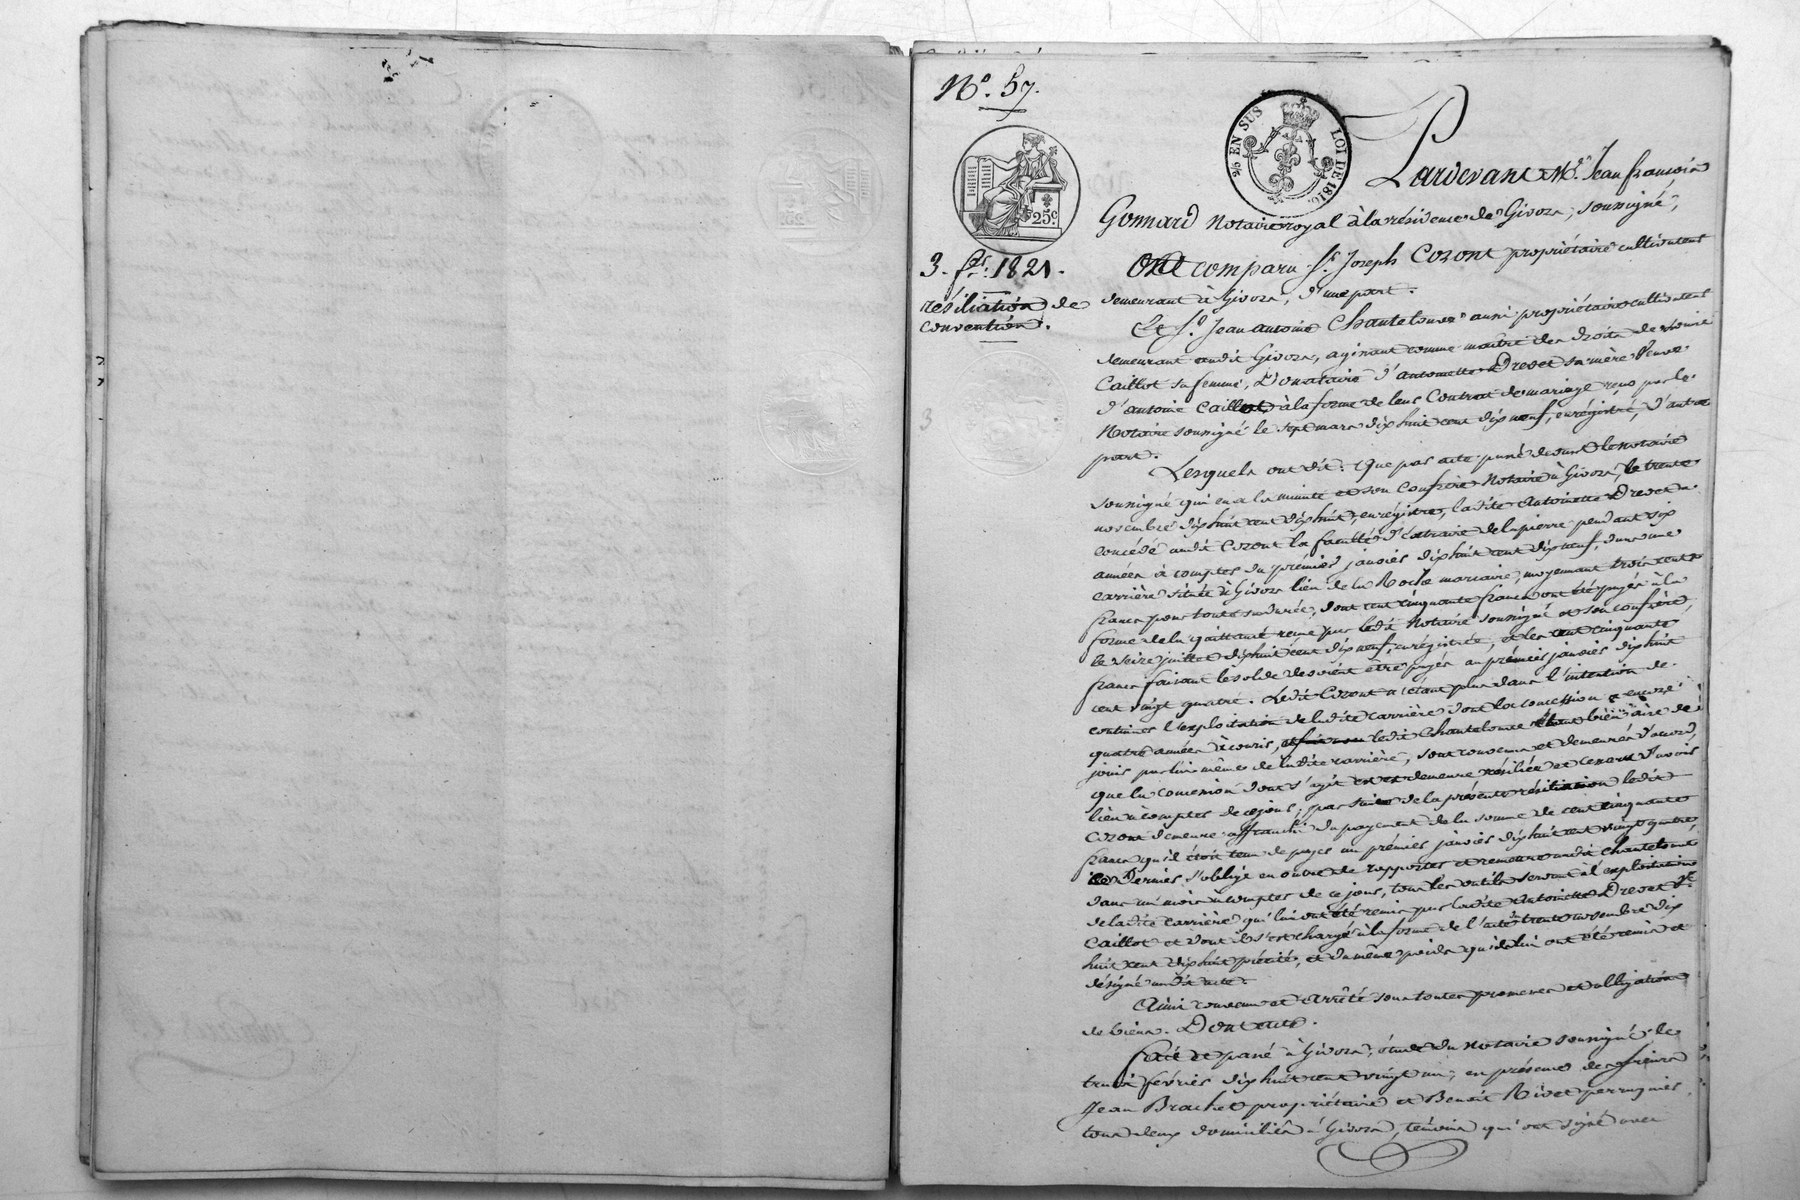 N.º 57.
2/5 EN SUS LOI DE 1816.
25.c
3. f.er 1821.
résiliation de
convention.
3
Pardevant M.e Jean françois
Gonnard Notaire royal à la résidence de Givors, soussigné,
Ont comparu s.r Joseph Cozont propriétaire cultivateur
demeurant à Givors, d'une part.
Et s.r Jean antoine Chantelouve aussi propriétaire cultivateur
demeurant audit Givors, agissant comme maître des droits de
Caillot sa femme, Donataire d'antoinette Drevet sa mère Veuve
d'antoine Caillot, à la forme de leur Contrat de mariage reçu par le
Notaire soussigné le sept mars dix huit cent dix neuf, enrégistré, d'autre
part.
Lesquels ont dit: Que par acte passé devant le notaire
soussigné qui en a la minute et son Confrère Notaire à Givors, le trente
novembre dix huit cent dix huit, enrégistré, ladite Antoinette Drevet a
concédé audit Cozont la faculté d'extraire de la pierre pendant six
années à compter du prémier janvier dix huit cent dix neuf, dans une
carrière située à Givors lieu de la Roche marcaire, moyennant trois cents
francs pour toute sa durée, dont cent cinquante francs ont été payés à la
forme de la quittance reçue par ledit Notaire soussigné et son confrère,
le seize juillet dix huit cent dix neuf, enrégistrée, et les cent cinquante
francs faisant le solde devoient être payés au prémier janvier dix huit
cent vingt quatre. Ledit Cozont n'étant plus dans l'intention de
continuer l'exploitation de ladite carrière dont la concession a encore
quatre années à courir, ledit Chantelouve étant bien aise de
jouir par lui même de ladite carrière, sont convenus et demeurés d'accord,
que la concession dont s'agit est et demeure résiliée et cessera d'avoir
lieu à compter de ce jour; par suite de la présente résiliation ledit
Cozont demeure affranchi du payement de la somme de cent cinquante
francs qu'il étoit tenu de payer au prémier janvier dix huit cent vingt quatre,
ce Dernier s'oblige en outre de rapporter et remettre audit Chantelouve
dans un mois à compter de ce jour, tous les outils servant à l'exploitation
de ladite carrière qui lui ont été remis par ladite Antoinette Drevet V.e
Caillot et dont il s'est chargé à la forme de l'acte du trente novembre dix
huit cent dix huit précité, et du même poids qu'ils lui ont été remis et
désigné audit acte.
Ainsi convenu et arrêté sous toutes promesses et obligation
de biens. Dont acte.
fait et passé à Givors, étude du notaire soussigné, le
trois février dix huit cent vingt un, en présence des sieurs
Jean Brachet propriétaire et Benoît Rivet perruquier
tous deux domiciliés à Givors, témoins qui ont signé avec